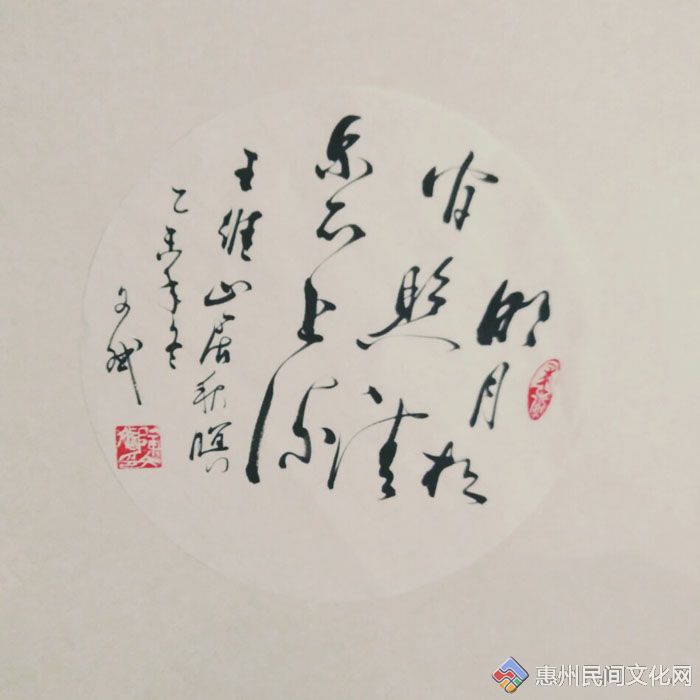 明月松
间照清
泉石上流
王維山居秋暝
己亥年冬
文斌
惠州民间文化网